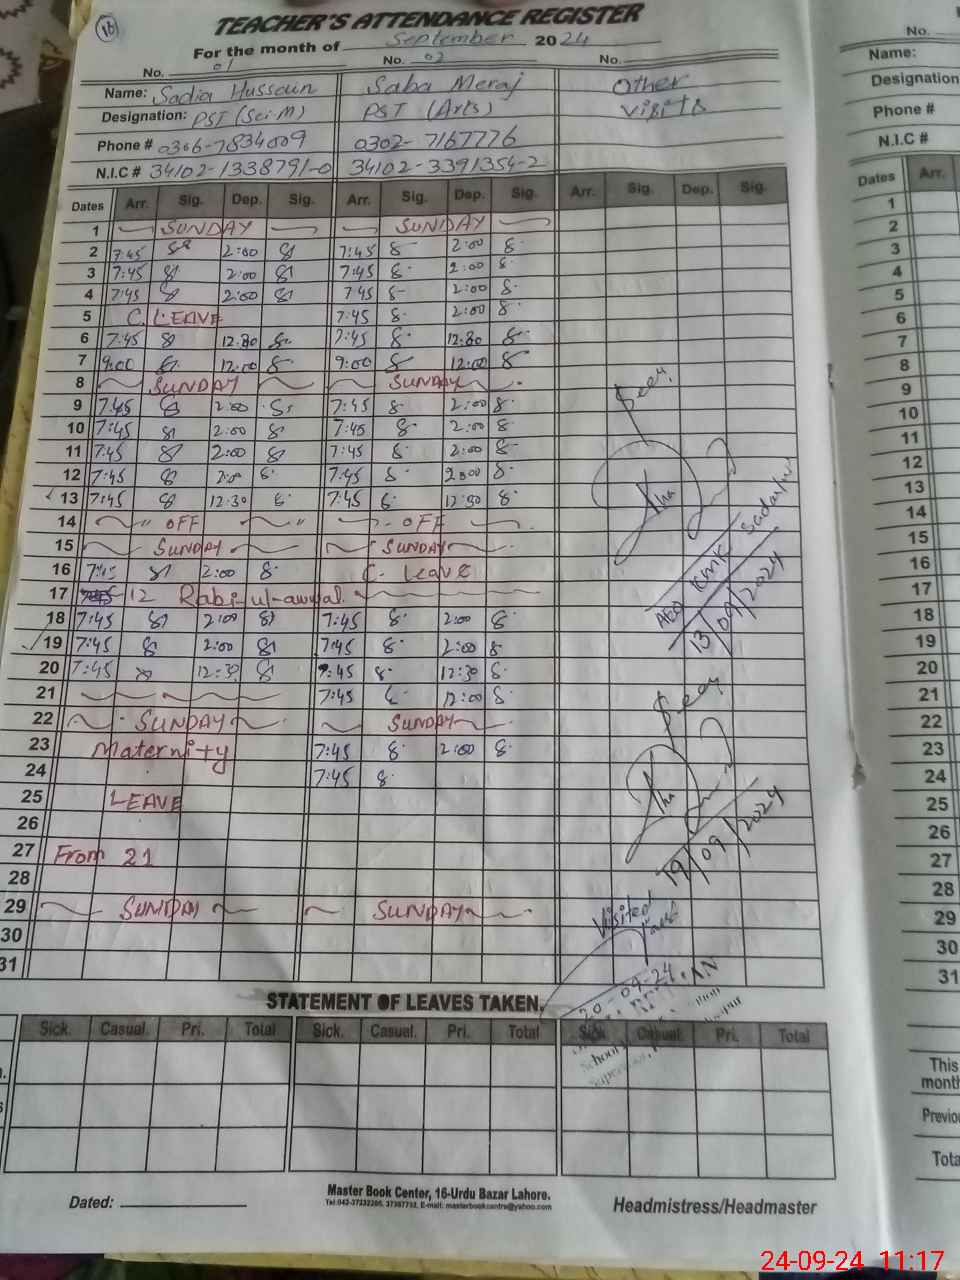 16
TEACHER'S ATTENDANCE REGISTER
For the month of September 2024
No. 01 No. 02 No.
Name: Sadia Hussain Saba Meraj Other
Designation: PST (Sci.M) PST (Arts) Visits
Phone # 0306-7834009 0302-7167776
N.I.C # 34102-1338791-0 34102-3391354-2
Dates Arr. Sig. Dep. Sig. Arr. Sig. Dep. Sig. Arr. Sig. Dep. Sig.
1 SUNDAY SUNDAY
2 7:45 2:00 7:45 2:00
3 7:45 2:00 7:45 2:00
4 7:45 2:00 7:45 2:00
5 C. LEAVE 7:45 2:00
6 7:45 12:30 7:45 12:30
7 9:00 12:00 9:00 12:00
8 SUNDAY SUNDAY
9 7:45 2:00 7:45 2:00
10 7:45 2:00 7:45 2:00
11 7:45 2:00 7:45 2:00
12 7:45 2:00 7:45 2:00
13 7:45 12:30 7:45 12:30
14 OFF OFF
15 SUNDAY SUNDAY
16 7:45 2:00 C. Leave
17 12 Rabi-ul-awwal
18 7:45 2:00 7:45 2:00
19 7:45 2:00 7:45 2:00
20 7:45 12:30 7:45 12:30
21 7:45 12:00
22 SUNDAY SUNDAY
23 Maternity 7:45 2:00
24 7:45
25 LEAVE
26
27 From 21
28
29 SUNDAY SUNDAY
30
31
Seen
AEO KMK
13/09/2024
Seen
19/09/2024
Visited
20-09-24
School
STATEMENT OF LEAVES TAKEN.
Sick. Casual. Pri. Total Sick. Casual. Pri. Total Sick. Casual. Pri. Total
Dated:
Master Book Center, 16-Urdu Bazar Lahore.
Headmistress/Headmaster
No.
Name:
Designation
Phone #
N.I.C #
Dates Arr.
1
2
3
4
5
6
7
8
9
10
11
12
13
14
15
16
17
18
19
20
21
22
23
24
25
26
27
28
29
30
31
This
month
Total
24-09-24 11:17